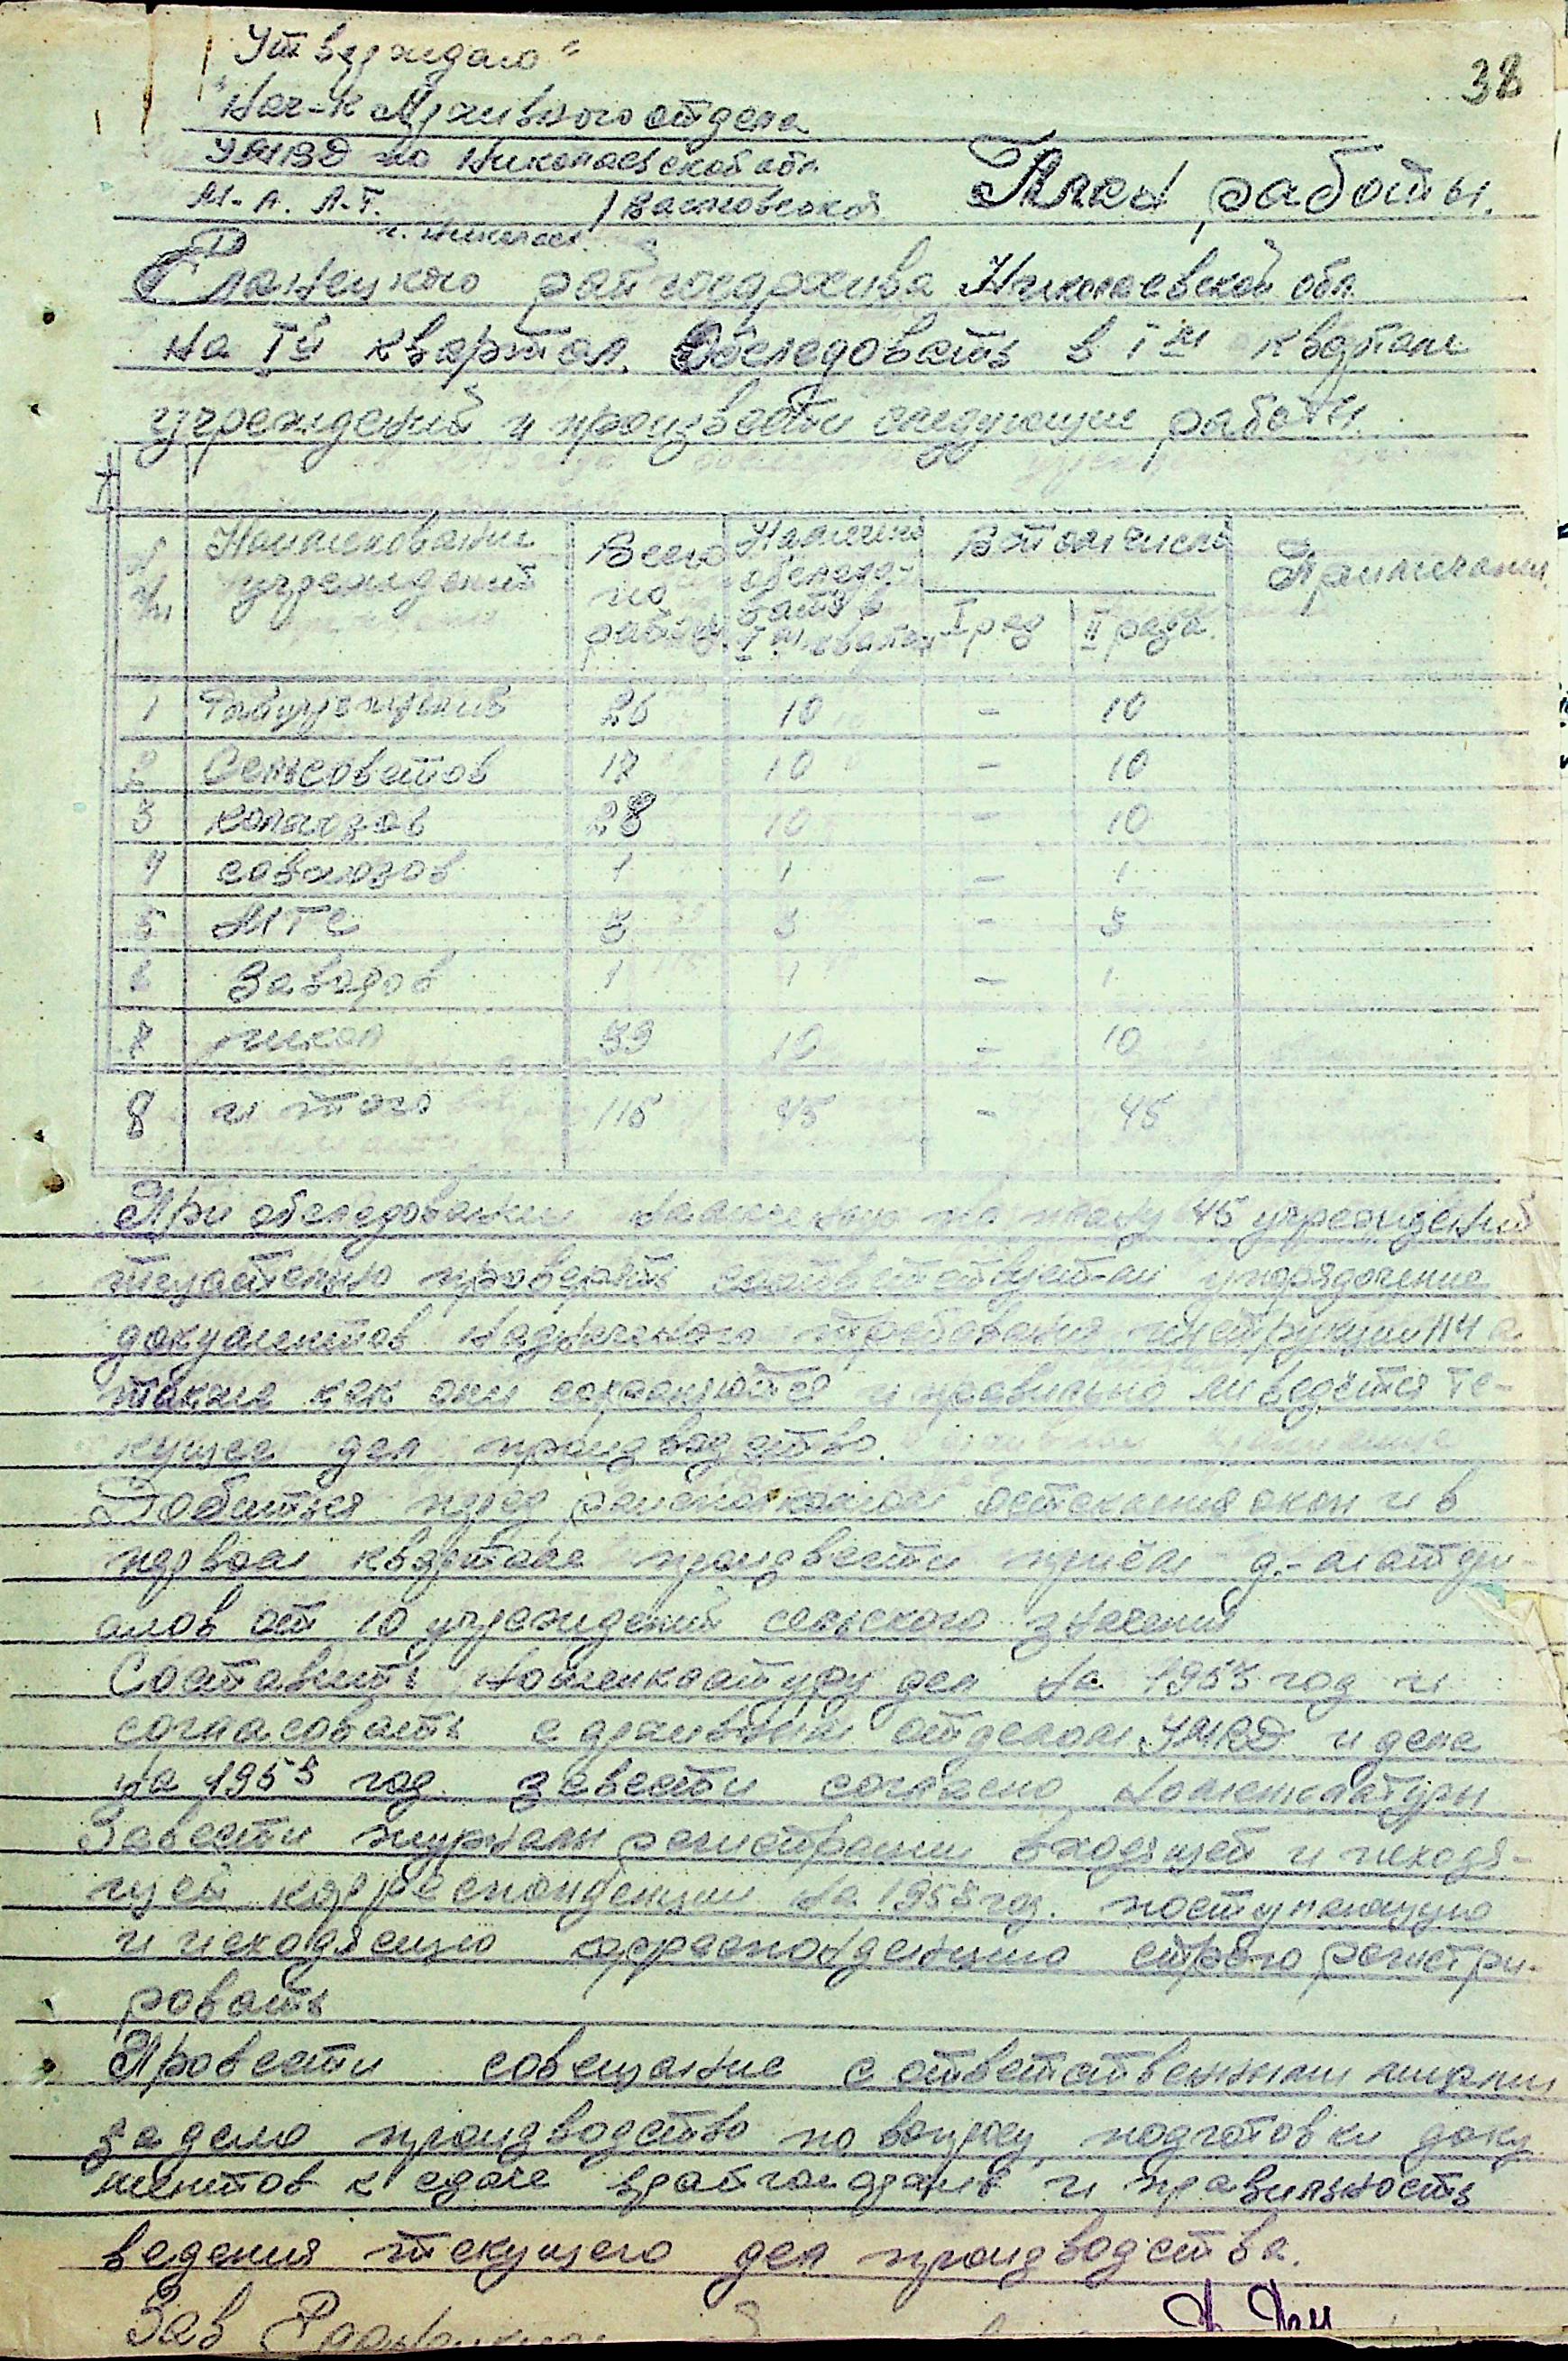 38
"Утверждаю"
"Нач-к Архивного отдела
УМВД по Николаевской обл.
М-л. Л-т. /Васловской
г. Николаев.
План работы.
Еланецкого райгосархива Николаевской обл
на I й квартал. Обследовать в I м квартале
учреждений и произвести следующие работы.
№ п/п | Наименование учреждений | Всего по району | Намечено обследовать в I м квартале | В том числе I раз | II раза | Примечания
1 Райучреждений 26 10 - 10
2 Сельсоветов 17 10 - 10
3 колхозов 28 10 - 10
4 совхозов 1 1 - 1
5 МТС 3 3 - 3
6 Заводов 1 1 - 1
7 школ 39 10 - 10
8 итого 115 45 - 45
При обследовании намечено по плану 45 учреждений
тщательно проверять соответствует-ли упорядочение
документов требования инструкции 114 а
также как они сохраняются и правильно ли ведётся те-
кущее дел производство.
Добиться пред райисполкомом остекления окон и в
первом квартале произвести приём д.-матери-
алов от 10 учреждений сельского значения
Составить номенклатуру дел на 1953 год и
согласовать с архивным отделом УМВД и дела
на 1953 год. завести согласно номенклатуры
Завести журналы регистрации входящей и исходя-
щей корреспонденции на 1953 год. поступающую
и исходящую корреспонденцию строго регистри-
ровать
Провести совещание с ответственными лицами
за дело производство по вопросу подготовки доку
ментов к сдаче врайгосархив и правильность
ведения текущего дел производства.
Зав Еланецким